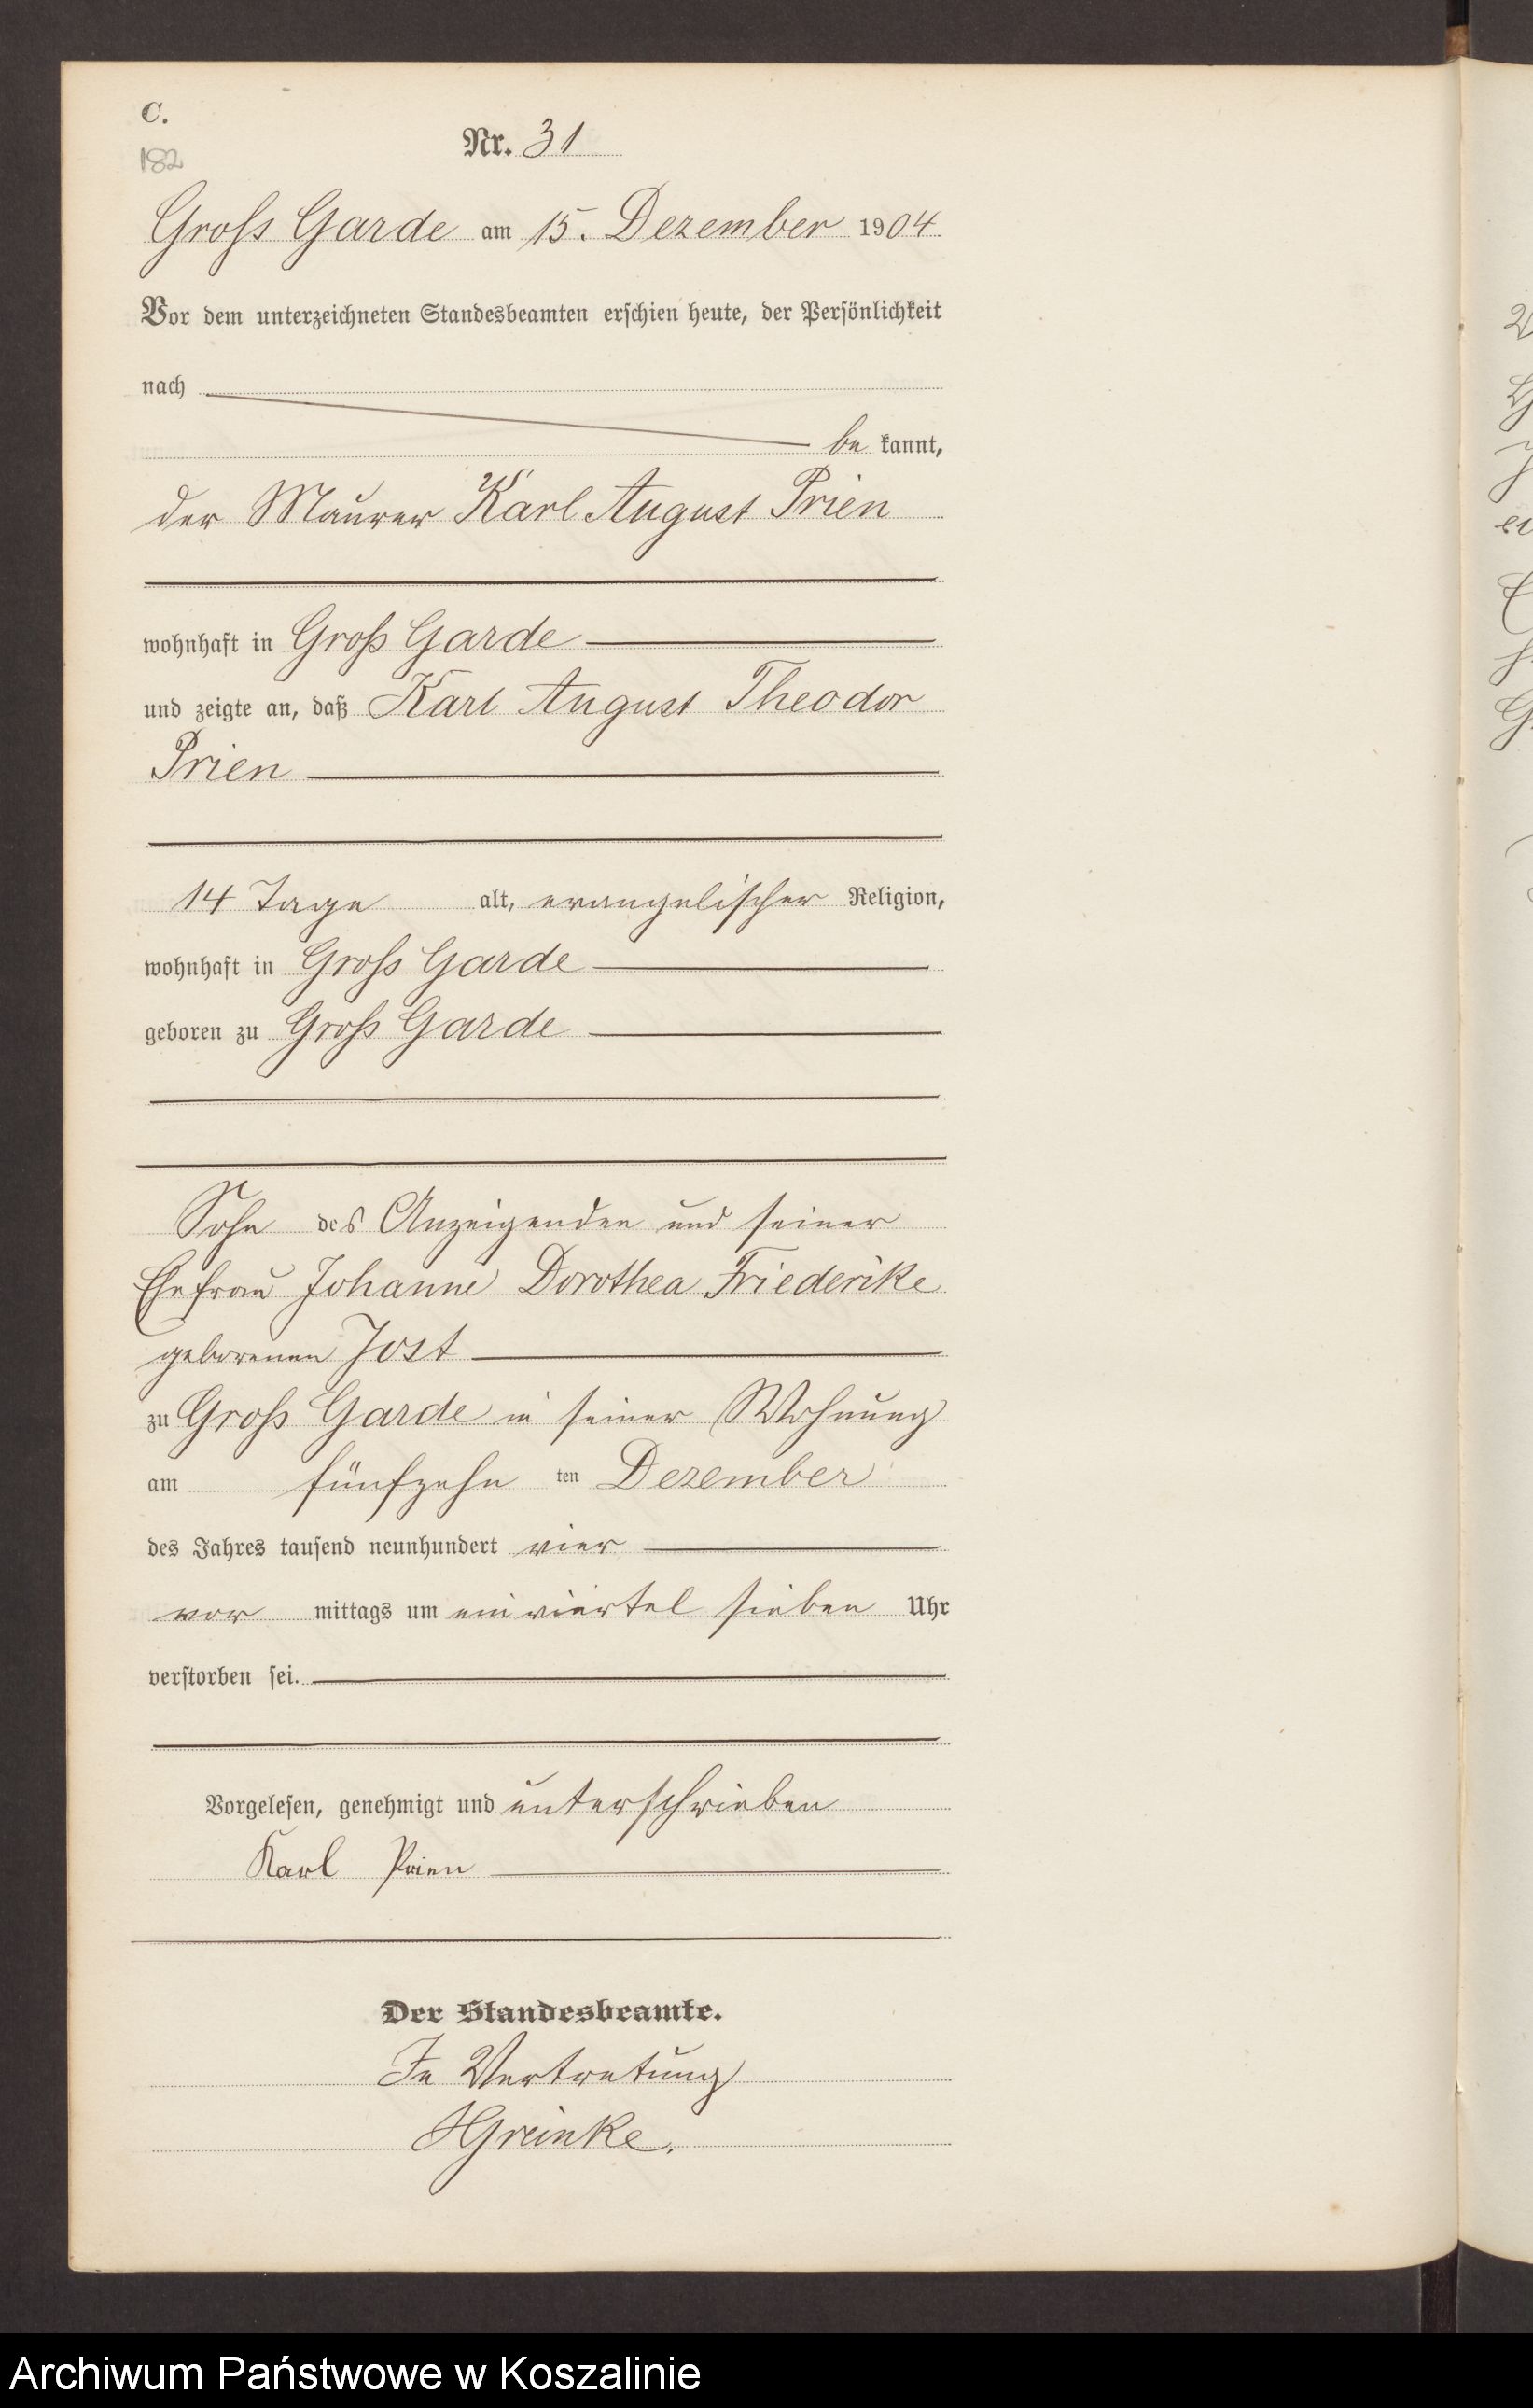 C.
182
Nr. 31
Gross Garde am 15. Dezember 1904
Vor dem unterzeichneten Standesbeamten erschien heute, der Persönlichkeit
nach
be kannt,
der Maurer Karl August Prien
wohnhaft in Groß Garde
und zeigte an, daß Karl August Theodor
Prien
14 Tage alt, evangelischer Religion,
wohnhaft in Groß Garde
geboren zu Groß Garde
Sohn des Anzeigenden und seiner
Ehefrau Johanne Dorothea Friederike
geborenen Jost
zu Groß Garde in seiner Wohnung
am fünfzehn ten Dezember
des Jahres tausend neunhundert vier
vor mittags um ein viertel sieben Uhr
verstorben sei.
Vorgelesen, genehmigt und unterschrieben
Karl Prien
Der Standesbeamte.
In Vertretung
HGreinke.
Archiwum Państwowe w Koszalinie